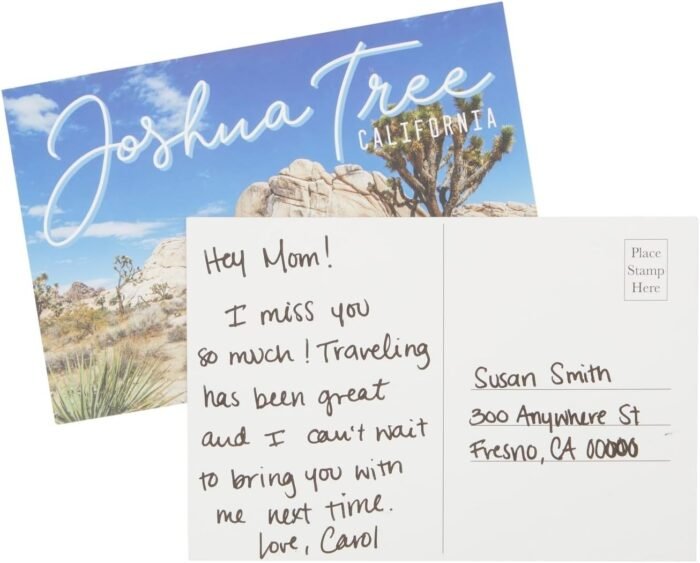 Joshua Tree
CALIFORNIA
Hey Mom!
I miss you
so much! Traveling
has been great
and I can't wait
to bring you with
me next time.
Love, Carol
Place
Stamp
Here
Susan Smith
300 Anywhere St
Fresno, CA 00000